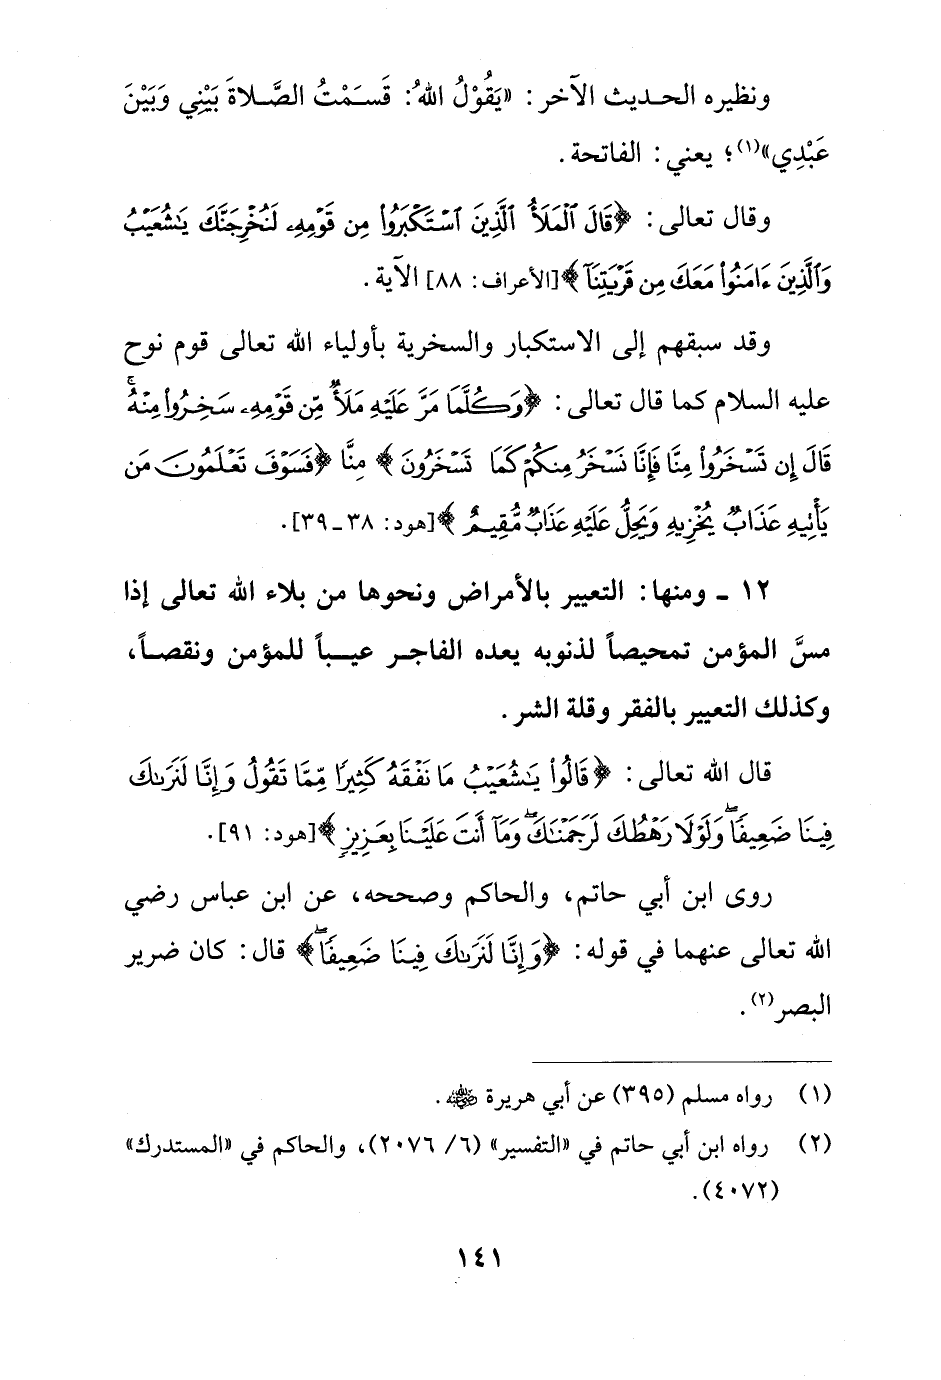 ونظيره الحديث الآخر: «يَقُوْلُ اللهُ: قَسَمْتُ الصَّلاةَ بَيْنِي وَبَيْنَ
عَبْدِي»(١)؛ يعني: الفاتحة.
وقال تعالى: ﴿قَالَ ٱلْمَلَأُ ٱلَّذِينَ ٱسْتَكْبَرُوا۟ مِن قَوْمِهِۦ لَنُخْرِجَنَّكَ يَـٰشُعَيْبُ
وَٱلَّذِينَ ءَامَنُوا۟ مَعَكَ مِن قَرْيَتِنَآ﴾ [الأعراف: ٨٨] الآية.
وقد سبقهم إلى الاستكبار والسخرية بأولياء الله تعالى قوم نوح
عليه السلام كما قال تعالى: ﴿وَكُلَّمَا مَرَّ عَلَيْهِ مَلَأٌ مِّن قَوْمِهِۦ سَخِرُوا۟ مِنْهُ ۚ
قَالَ إِن تَسْخَرُوا۟ مِنَّا فَإِنَّا نَسْخَرُ مِنكُمْ كَمَا تَسْخَرُونَ﴾ مِنَّا ﴿فَسَوْفَ تَعْلَمُونَ مَن
يَأْتِيهِ عَذَابٌ يُخْزِيهِ وَيَحِلُّ عَلَيْهِ عَذَابٌ مُّقِيمٌ﴾ [هود: ٣٨ - ٣٩].
١٢ - ومنها: التعيير بالأمراض ونحوها من بلاء الله تعالى إذا
مسَّ المؤمن تمحيصاً لذنوبه يعده الفاجر عيباً للمؤمن ونقصاً،
وكذلك التعيير بالفقر وقلة الشر.
قال الله تعالى: ﴿قَالُوا۟ يَـٰشُعَيْبُ مَا نَفْقَهُ كَثِيرًا مِّمَّا تَقُولُ وَإِنَّا لَنَرَىٰكَ
فِينَا ضَعِيفًا ۖ وَلَوْلَا رَهْطُكَ لَرَجَمْنَـٰكَ ۖ وَمَآ أَنتَ عَلَيْنَا بِعَزِيزٍ﴾ [هود: ٩١].
روى ابن أبي حاتم، والحاكم وصححه، عن ابن عباس رضي
الله تعالى عنهما في قوله: ﴿وَإِنَّا لَنَرَىٰكَ فِينَا ضَعِيفًا ۖ﴾ قال: كان ضرير
البصر(٢).
(١) رواه مسلم (٣٩٥) عن أبي هريرة رضي الله عنه.
(٢) رواه ابن أبي حاتم في «التفسير» (٦/ ٢٠٧٦)، والحاكم في «المستدرك»
(٤٠٧٢).
١٤١